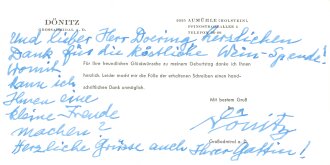 DÖNITZ
GROSSADMIRAL A. D.
2055 AUMÜHLE (HOLSTEIN)
Und lieber Herr Doering, herzlichen
Dank für die köstliche Wein-Spende!
Für Ihre freundlichen Glückwünsche zu meinem Geburtstag danke ich Ihnen
herzlich. Leider macht mir die Fülle der erhaltenen Schreiben einen hand-
schriftlichen Dank unmöglich.
Womit
kann ich
Ihnen eine
kleine Freude
machen?
Mit bestem Gruß
Dönitz
Großadmiral a. D.
Herzliche Grüsse auch Ihrer Gattin!